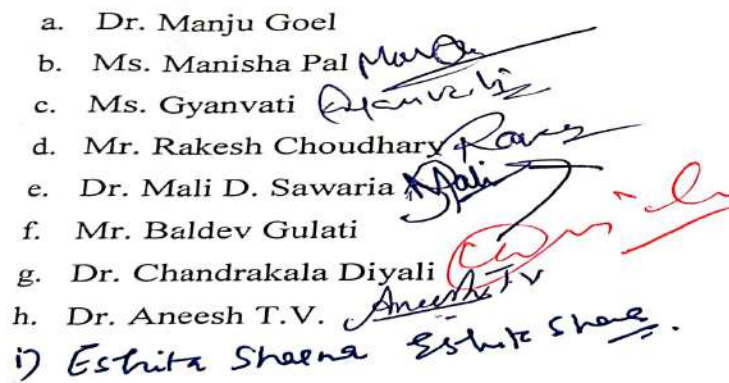 a. Dr. Manju Goel
b. Ms. Manisha Pal
c. Ms. Gyanvati Gyanvati
d. Mr. Rakesh Choudhary
e. Dr. Mali D. Sawaria Mali
f. Mr. Baldev Gulati
g. Dr. Chandrakala Diyali
h. Dr. Aneesh T.V. Aneesh TV
i) Eshita